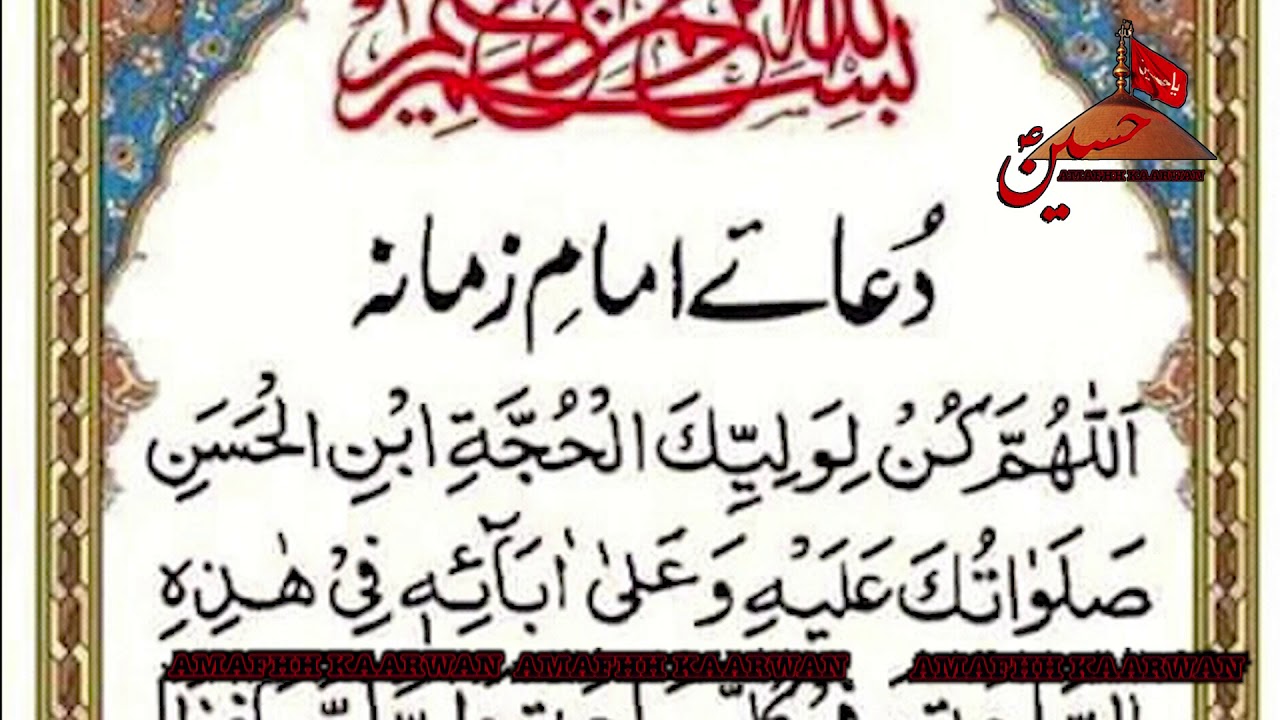 بسم الله الرحمن الرحيم
یا حسین
حسینؑ
AMAFHH KAARWAN
دُعائے امامِ زمانہ
اَللّٰهُمَّ كُنْ لِوَلِيِّكَ الْحُجَّةِ ابْنِ الْحَسَنِ
صَلَوٰاتُكَ عَلَيْهِ وَعَلىٰ اٰبَآئِهٖ فِيْ هٰذِهِ
AMAFHH KAARWAN AMAFHH KAARWAN AMAFHH KAARWAN